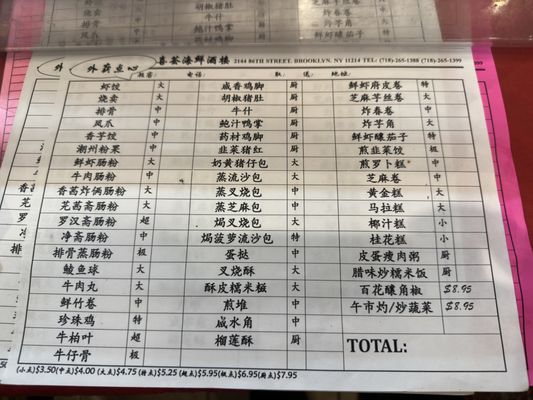 外 外卖点心 喜荟海鲜酒楼 2164 86TH STREET. BROOKLYN. NY 11214 TEL: (718)-265-1388 (718)-265-1399
电话: 取: 送: 地址:
虾饺 大 咸香鸡脚 厨 鲜虾腐皮卷 特
烧卖 大 胡椒猪肚 厨 芝麻芋丝卷 大
排骨 中 牛什 厨 炸春卷 中
凤爪 中 鲍汁鸭掌 厨 炸芋角 中
香芋饺 中 药材鸡脚 厨 鲜虾釀茄子 特
潮州粉果 中 韭菜猪红 厨 煎韭菜饺 极
鲜虾肠粉 大 奶黄猪仔包 大 煎萝卜糕 中
牛肉肠粉 大 蒸流沙包 中 芝麻卷 中
香茜炸俩肠粉 大 蒸叉烧包 中 黄金糕 大
芫茜斋肠粉 大 蒸芝麻包 中 马拉糕 大
罗汉斋肠粉 超 焗叉烧包 中 椰汁糕 小
净斋肠粉 中 焗菠萝流沙包 特 桂花糕 小
排骨蒸肠粉 极 蛋挞 中 皮蛋瘦肉粥 厨
鲮鱼球 大 叉烧酥 大 腊味炒糯米饭 厨
牛肉丸 大 酥皮糯米糍 大 百花釀角椒 $8.95
鲜竹卷 中 煎堆 中 午市灼/炒蔬菜 $8.95
珍珠鸡 特 咸水角 中
牛柏叶 超 榴莲酥 厨 TOTAL:
牛仔骨 极
(小点)$3.50(中点)$4.00 (大点)$4.75 (特点)$5.25 (超点)$5.95(极点)$6.95(厨点)$7.95